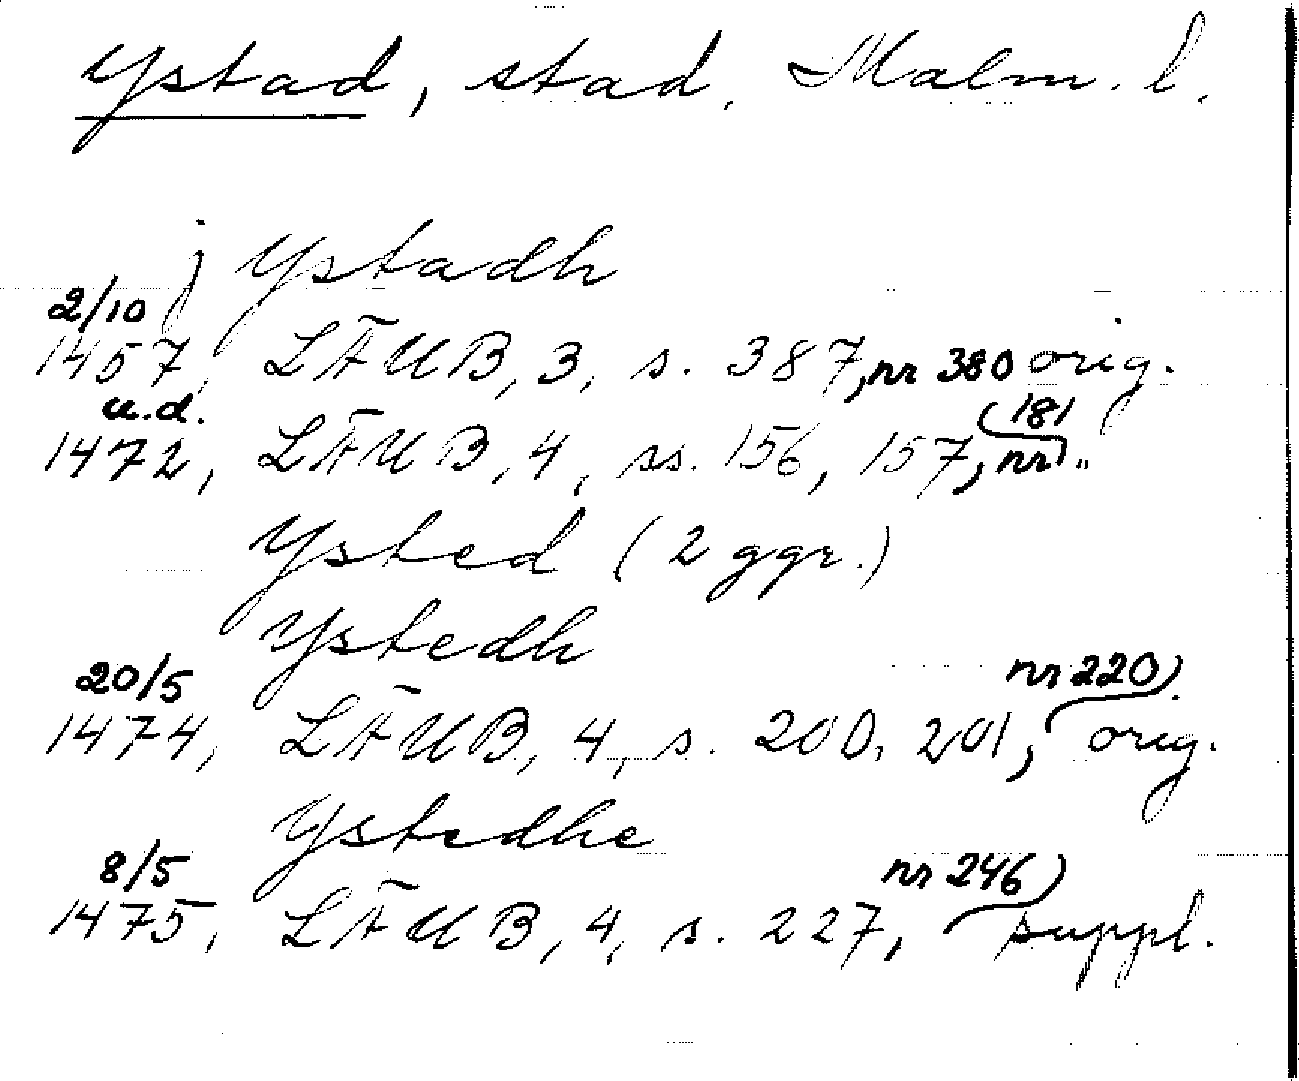 Ystad, stad. Malm. l.
j Ystadh
2/10
1457, LÄUB, 3, s. 387, nr 380 orig.
u.d.
1472, LÄUB, 4, ss. 156, 157, nr 181 "
Ysted (2 ggr.)
Ystedh
20/5 nr 220
1474, LÄUB, 4, s. 200, 201, orig.
Ystedhe
8/5 nr 246
1475, LÄUB, 4, s. 227, suppl.